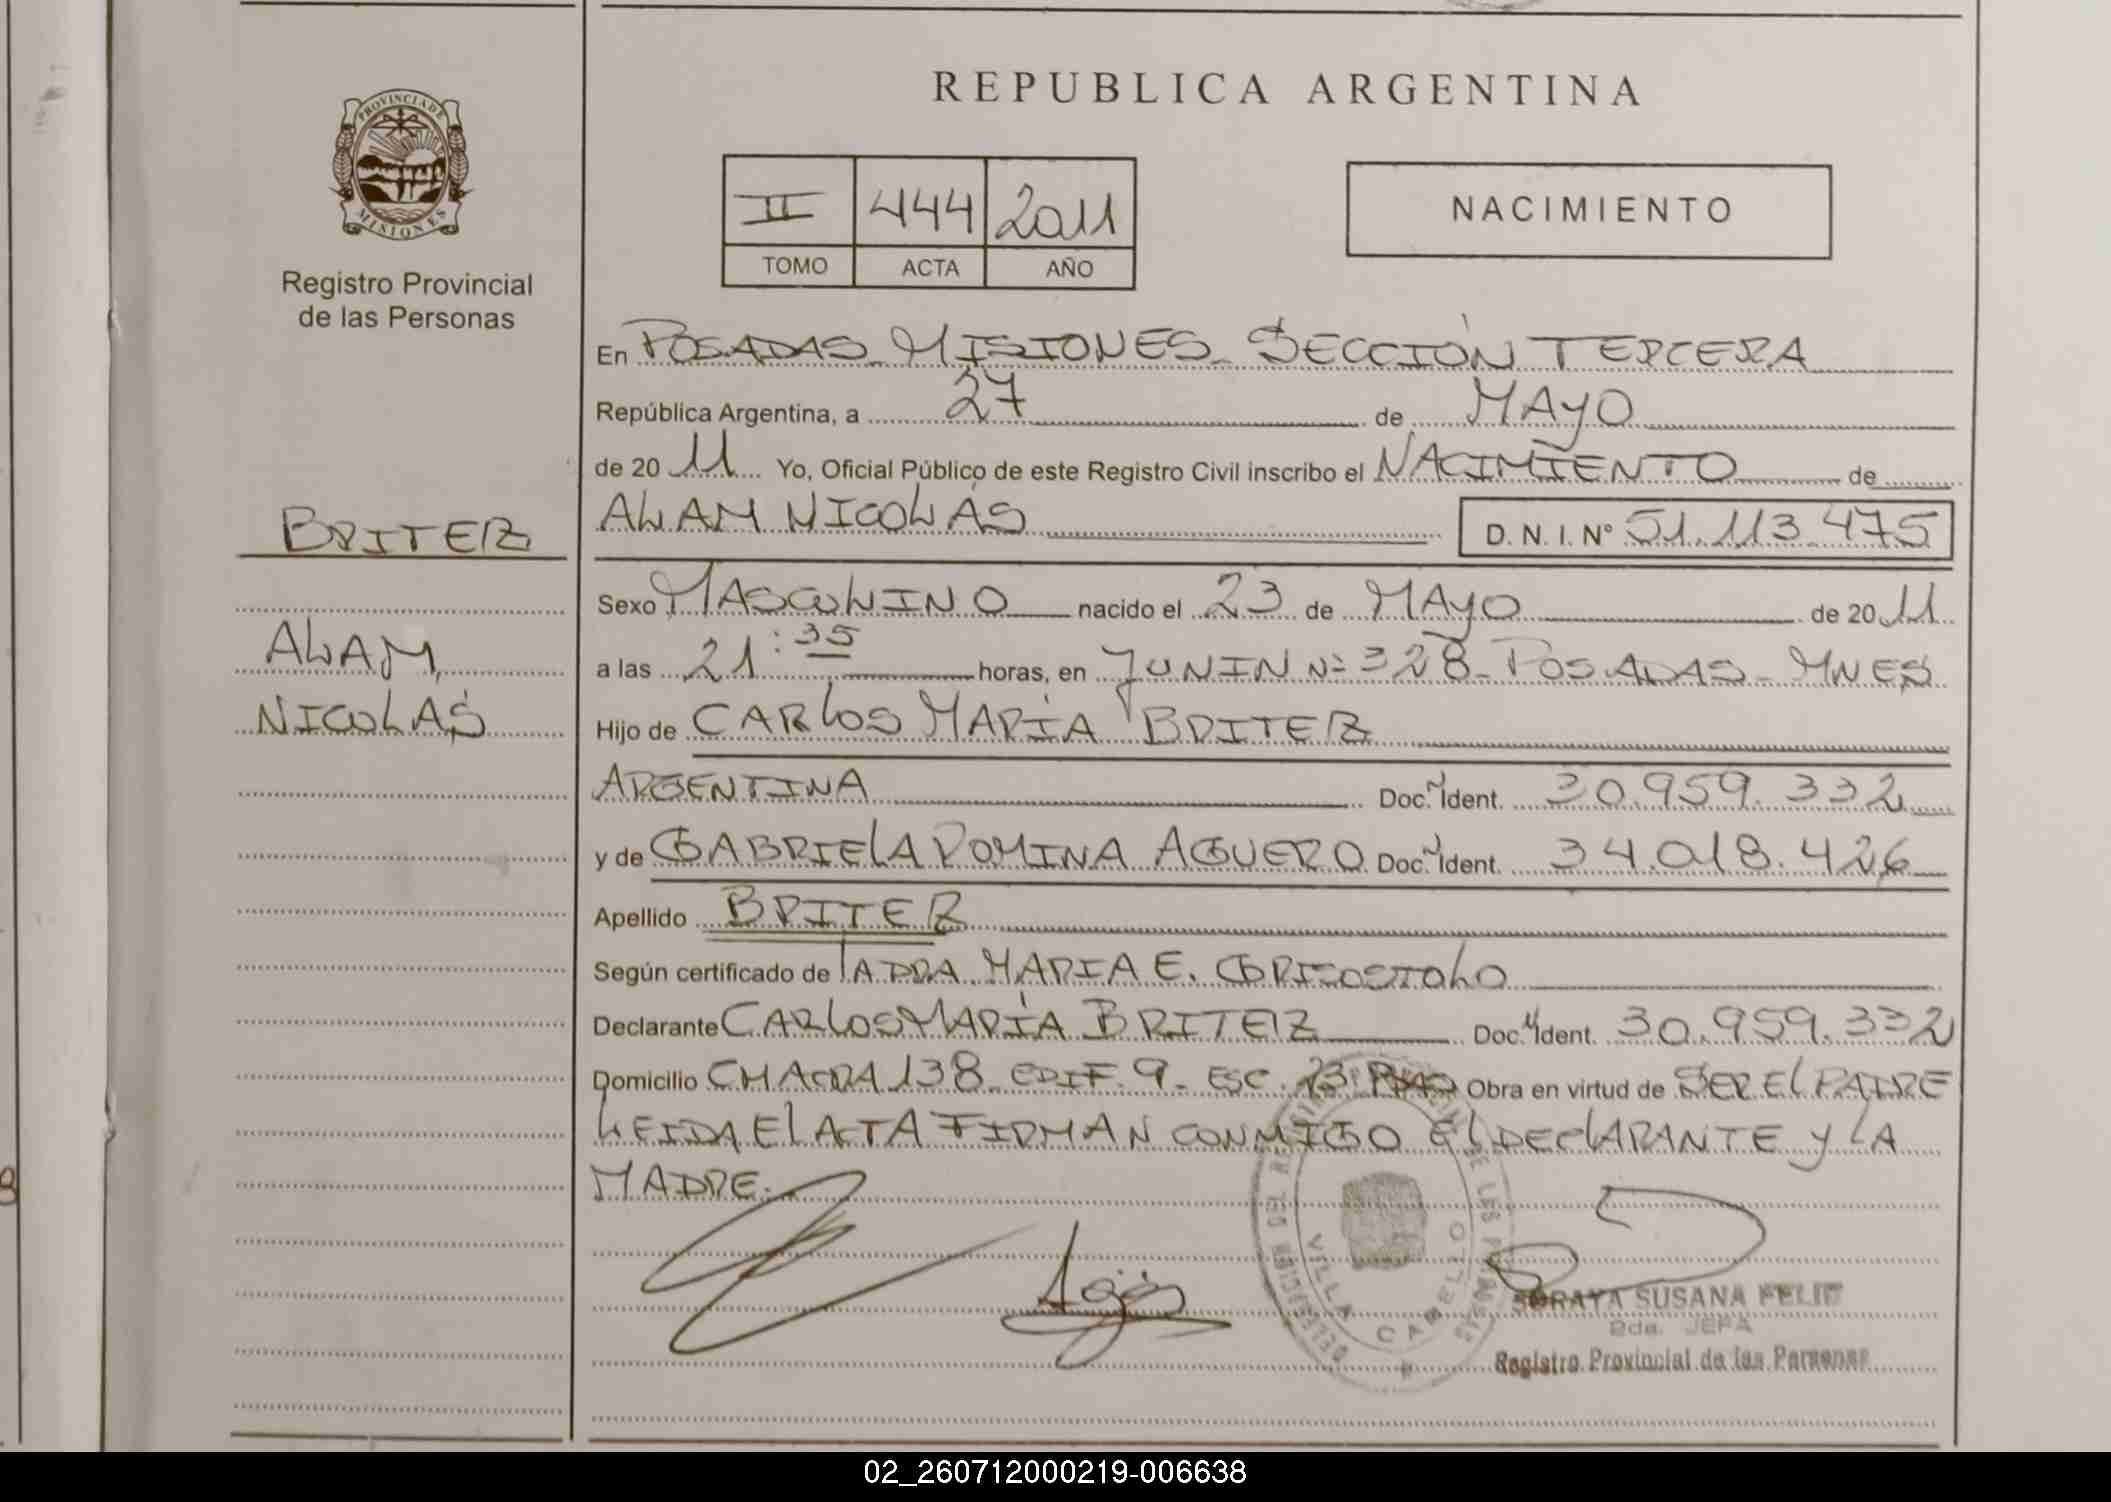 REPUBLICA ARGENTINA
PROVINCIA DE MISIONES
Registro Provincial
de las Personas
II 444 2011
TOMO ACTA AÑO
NACIMIENTO
En POSADAS - MISIONES - SECCIÓN TERCERA
República Argentina, a 27 de MAYO
de 20 11 Yo, Oficial Público de este Registro Civil inscribo el NACIMIENTO de
ALAM NICOLÁS D. N. I. Nº 51.113.475
BRITEZ
ALAM
NICOLÁS
Sexo MASCULINO nacido el 23 de MAYO de 20 11
a las 21:35 horas, en JUNIN Nº 328 - POSADAS - MNES
Hijo de CARLOS MARÍA BRITEZ
ARGENTINA Doc. Ident. 30.959.332
y de GABRIELA ROMINA AGUERO Doc. Ident. 34.018.426
Apellido BRITEZ
Según certificado de LA DRA. MARIA E.
Declarante CARLOS MARÍA BRITEZ Doc. Ident. 30.959.332
Domicilio CHACRA 138 - EDIF. 9 - ESC. 23 PDAS Obra en virtud de SER EL PADRE
LEIDA EL ACTA FIRMAN CONMIGO EL DECLARANTE Y LA
MADRE.
VILLA CABELLO
SORAYA SUSANA
2da. JEFA
Registro Provincial de las Personas
02_260712000219-006638